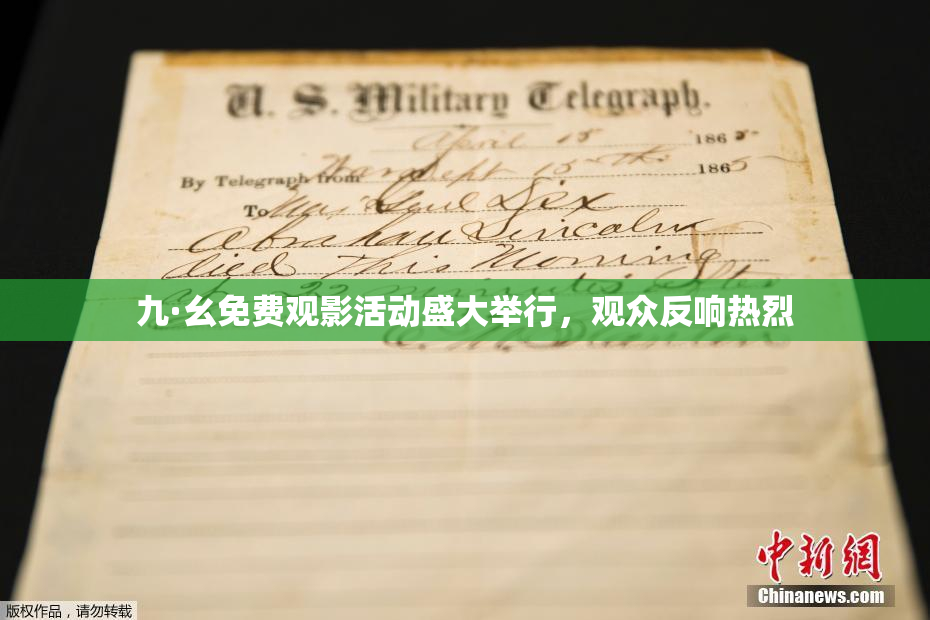 U. S. Military Telegraph.
April 15 1865
By Telegraph from War Dept 15th 1865
To Maj Genl Dix
Abraham Lincoln
died This Morning
22 minutes after
九·幺免费观影活动盛大举行，观众反响热烈
中新网
Chinanews.com
版权作品，请勿转载